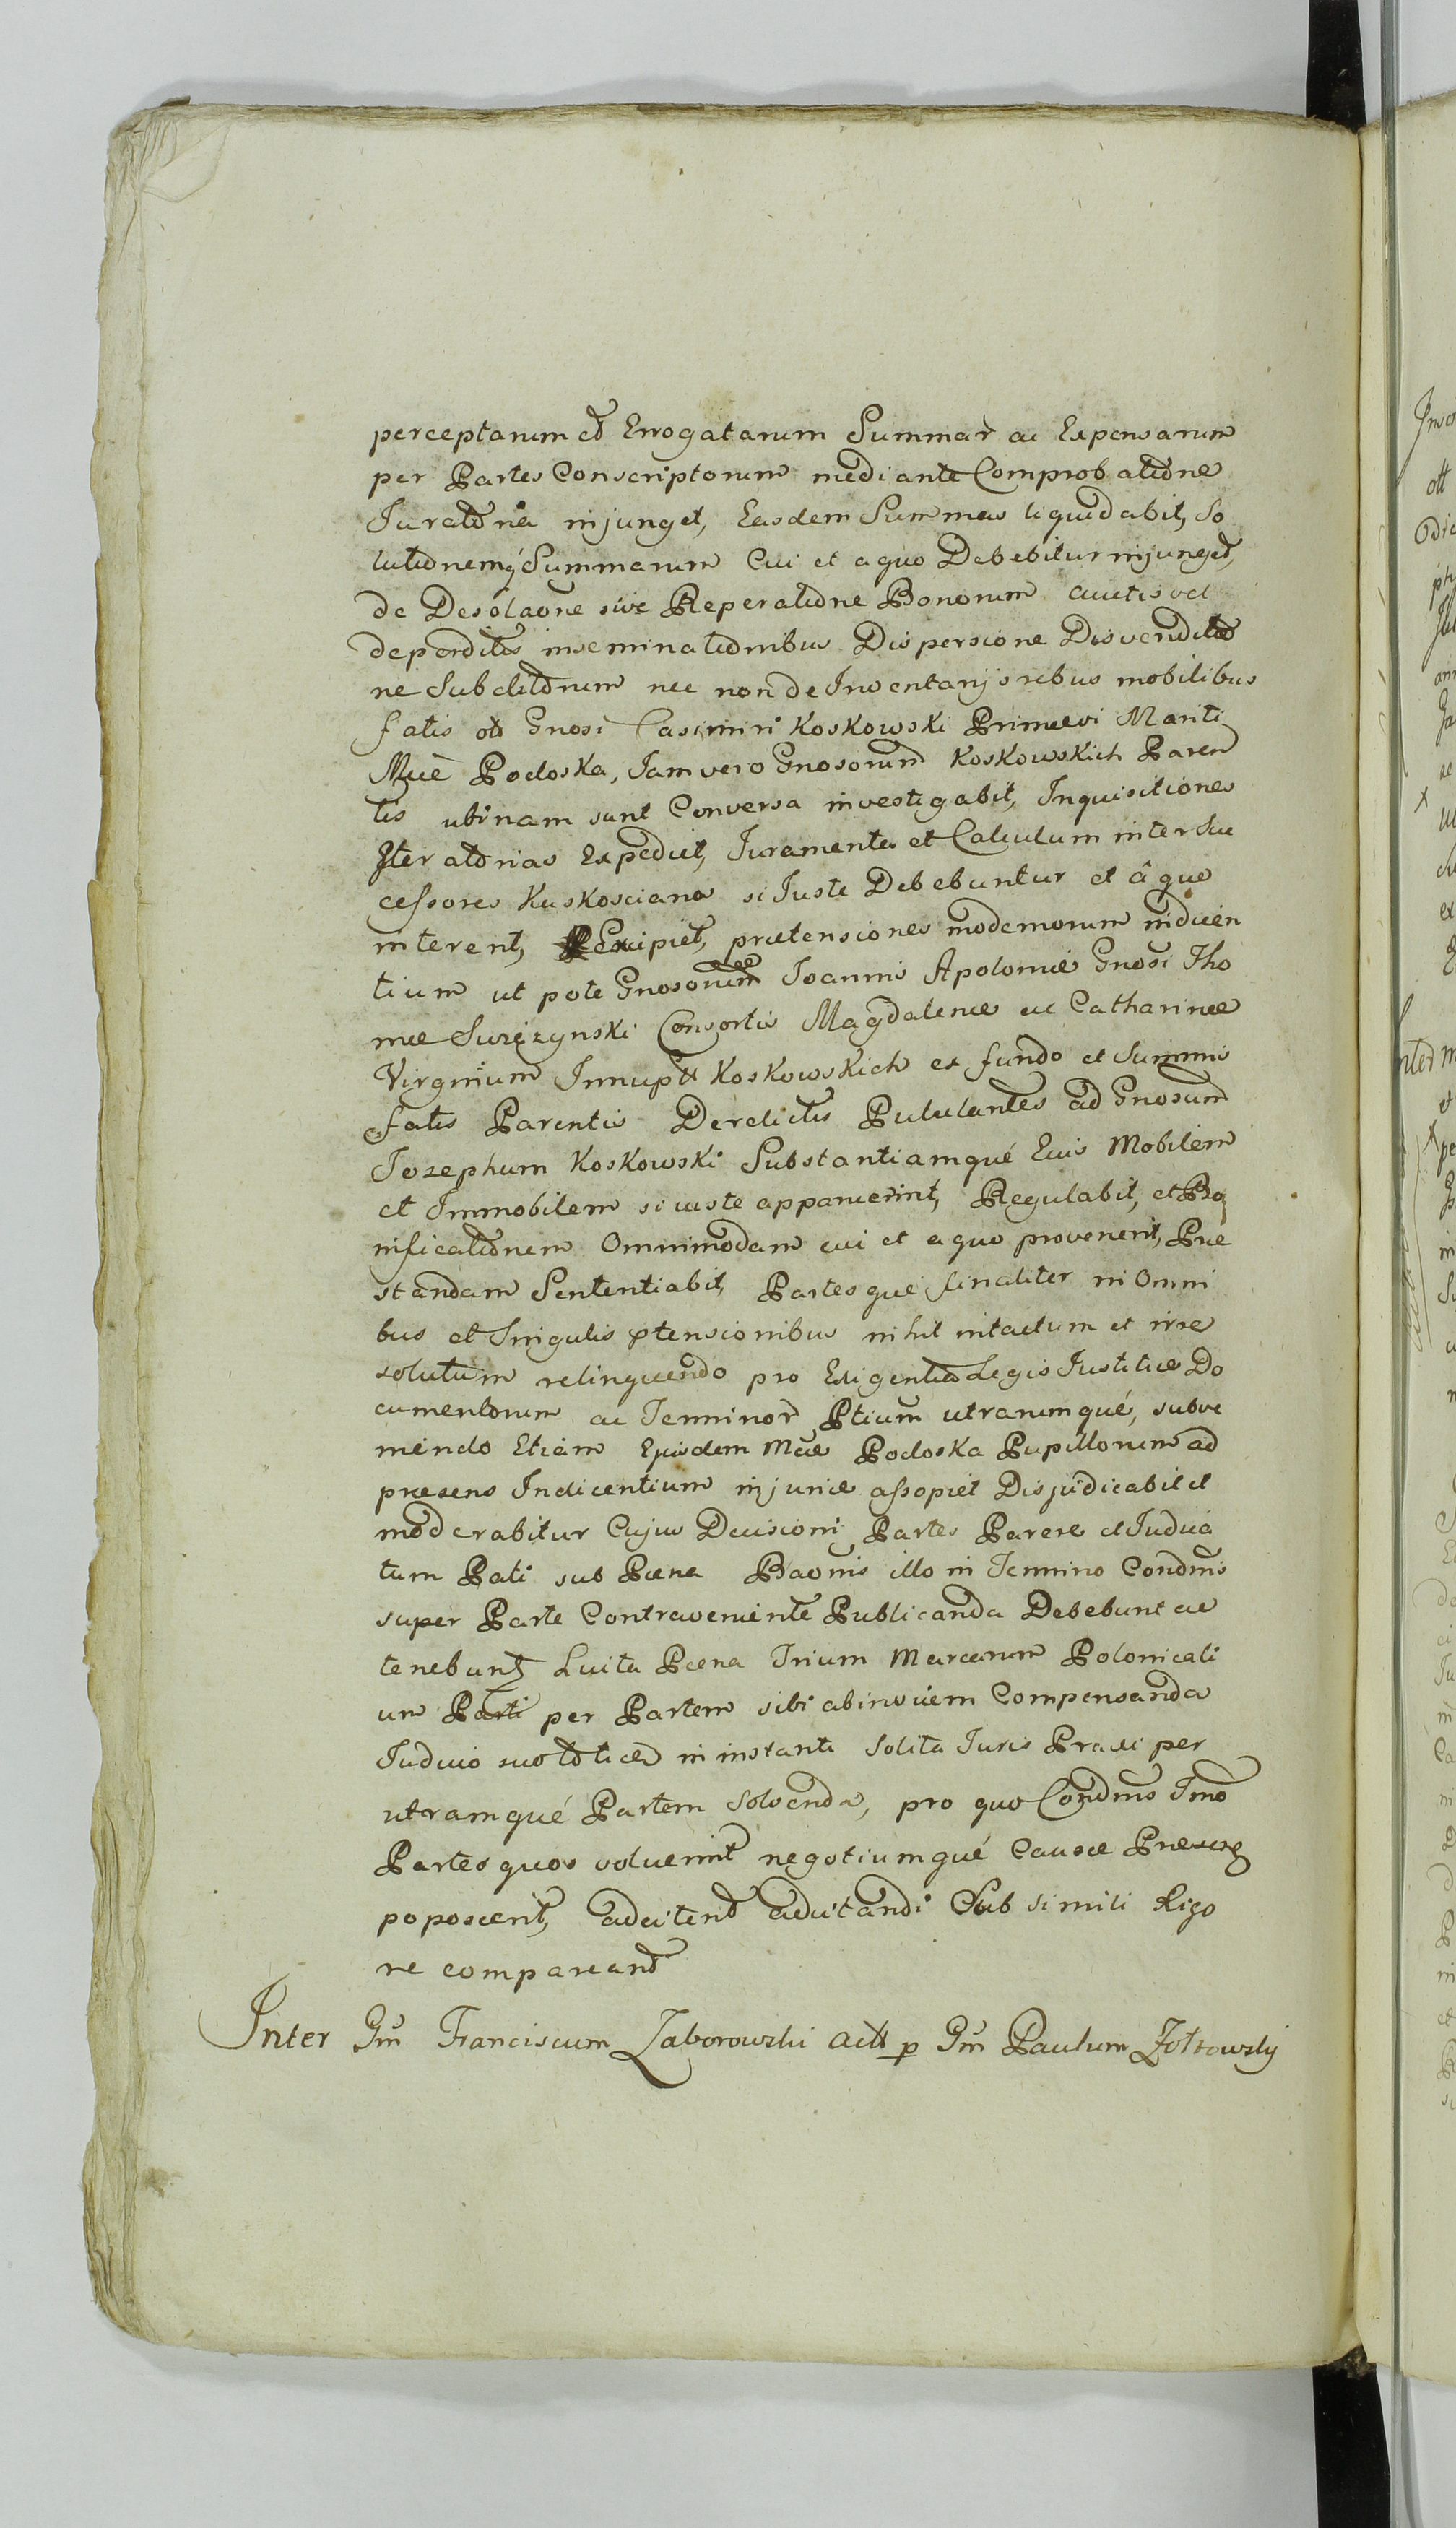 perceptarum et Errogatarum Summar ac Expensarum
per Partes Conscriptorum mediante Comprobatione
Juratoria injunget, Easdem Summas liquidabit, So
lutionemq Summarum Cui et a quo Debebitur injunget,
de Desolaone sive Reperatione Bonorum auctis vel
deperditis inseminationibus Dispersione Disvenditio
ne Subditorum nec non de Inventarijs rebus mobilibus
fatis ol Gnosi Casimiri Koskowski Primaevi Mariti
Mcae Podoska, Jam vero Gnosorum Koskowskich Paren
tis ubinam sunt Conversa investigabit, Inquisitiones
Iteratorias Expediet, Juramenta et Calculum inter Suc
cessores Kuskosciana si Juste Debebuntur et â quo
interent, Excipiet, praetensiones modernorum inducen
tium ut pote Gnosorum Joannis Apoloniae Gnosi Tho
mae Surzynski Consortis Magdalenae ac Catharinae
Virginium Innuptt Koskowskich ex fundo et Summis
fatis Parentis Derelictis Pululantes ad Gnosum
Jozephum Koskowski Substantiamqué Eius Mobilem
et Immobilem si juste apparuerint, Regulabit, et Bo
nificationem Omnimodam cui et a quo provenerit, Prae
standam Sententiabit, Partesqué finaliter in Omni
bus et Singulis ptensionibus nihil intactum et irre
solutum relinquendo pro Exigentia Legis Justitiae Do
cumentorum ac Terminor Ptium utrarumqué, subve
niendo Etiam Ejusdem Mcae Podoska Pupillorum ad
praesens Indicentium injuriae assopiet Disjudicabit et
moderabitur Cujus Decisioni Partes Parere et Judica
tum Pati sub Paena Baonis illo in Termino Condnis
super Parte Contraveniente Publicanda Debebunt ac
tenebunt Luita Paena Trium Marcarum Polonicali
um Parti per Partem sibi abinvicem Compensanda
Judicio suo totice in instanti Solita Juris Praxi per
utramqué Partem Solvenda, pro quo Condnis Tmo
Partes quos voluerint negotiumqué Causae Praesens
poposcerit, adcitent adcitandi Sub simili Rigo
re compareant
Inter Gm Franciscum Zaborowski actt p Gm Paulum Żołtowsky